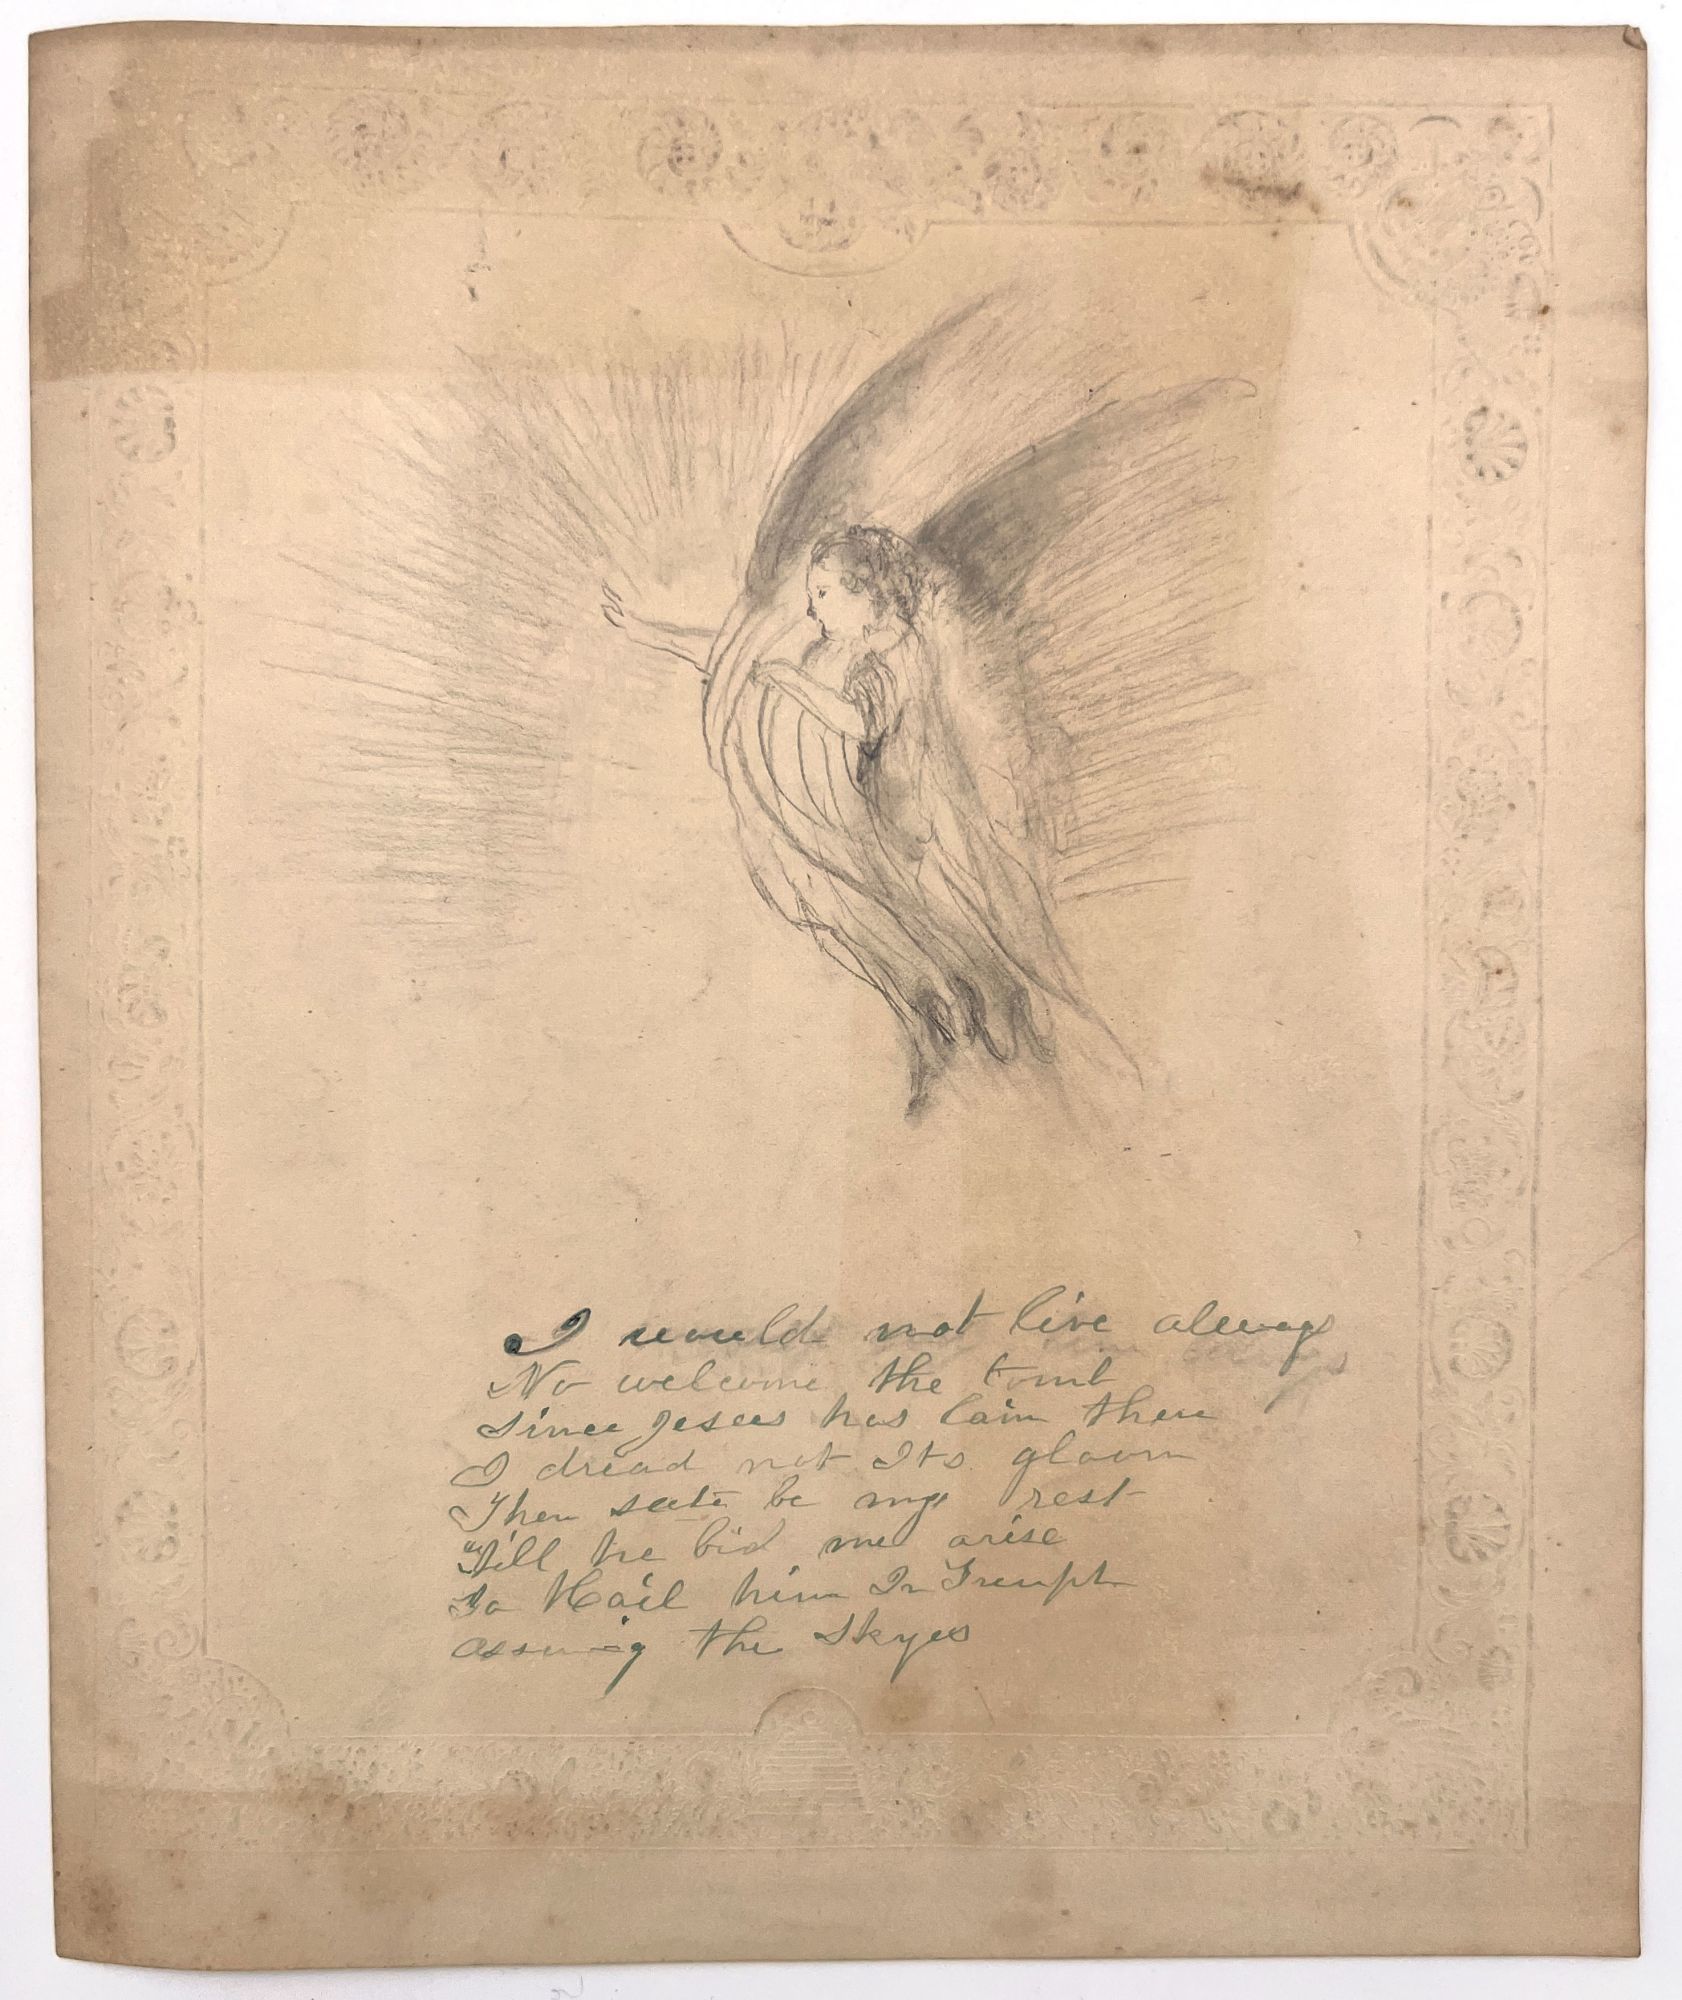 I would not live always
No welcome the tomb
Since Jesus has lain there
I dread not Its gloom
Then be my rest
Till he bid me arise
To Hail him In Triumph
assuming the Skyes